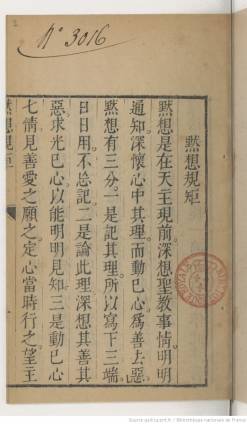 N° 3016
默想規矩
默想是在天主現前深想聖教事情明明
通知深懷心中其理而動己心為善去惡
默想有三分一是記其理所以寫下三端
日日用不忘記二是論此理深想其善其
惡求光己心以能明明見知三是動己心
七情見善愛之願之定心當時行之望主
默想規矩
Source gallica.bnf.fr / Bibliothèque nationale de France